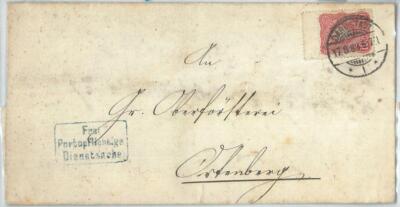 An
Gr. Oberförsterei
Ortenberg.
Frei
Portopflichtige
Dienstsache